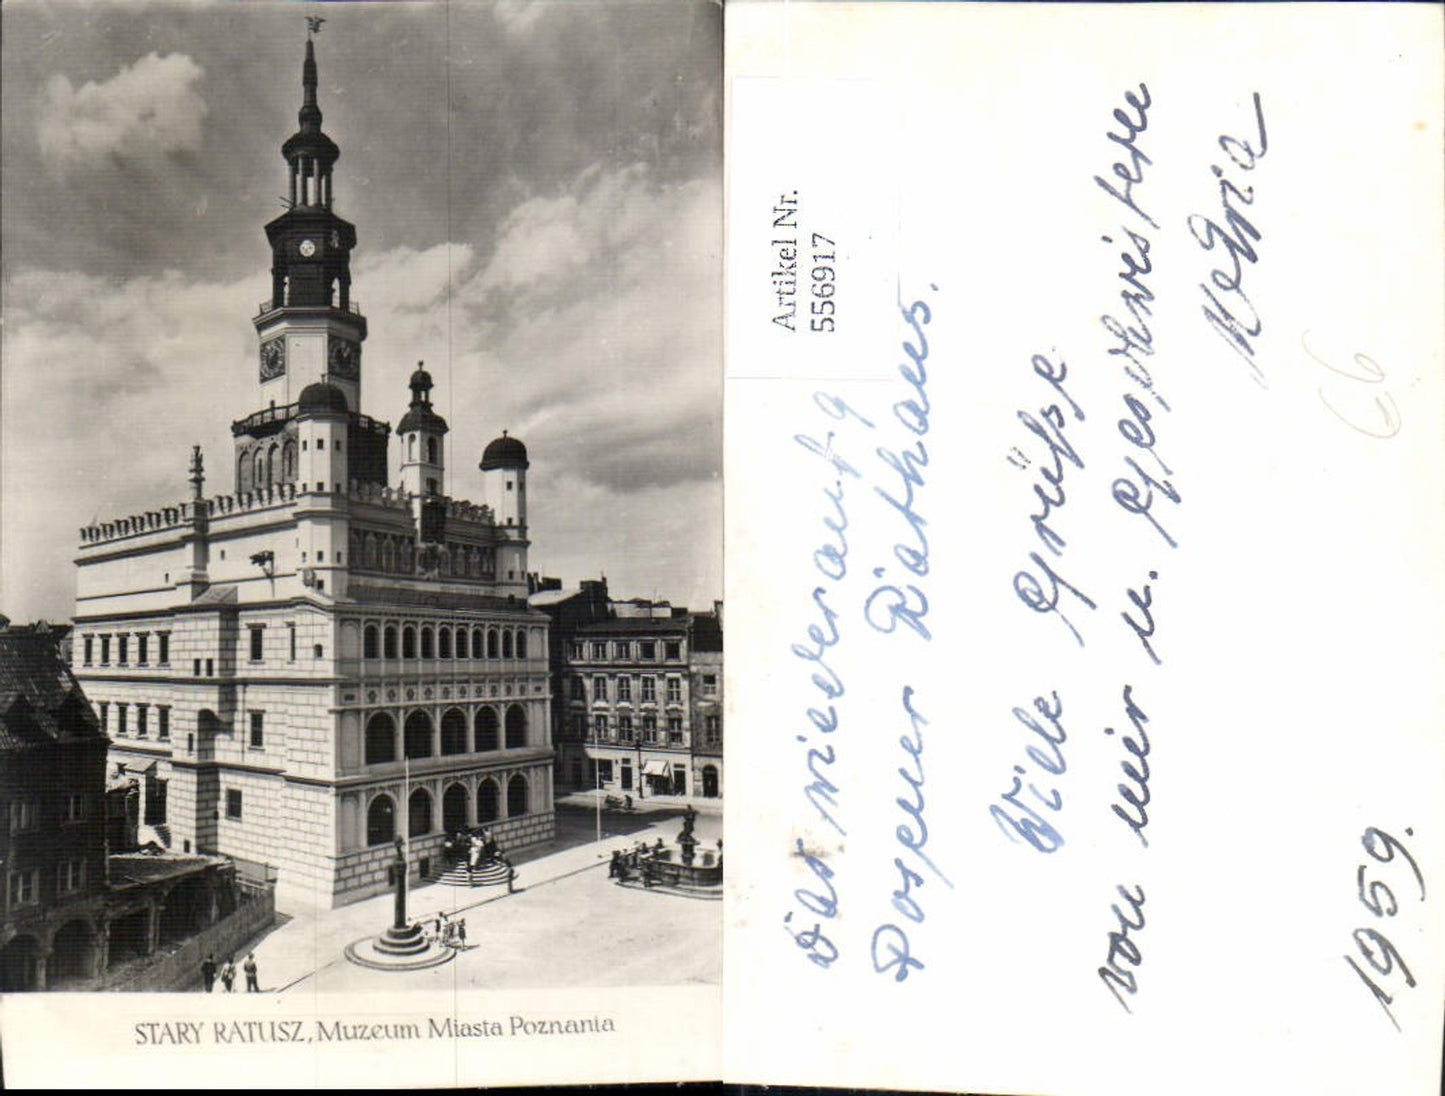 STARY RATUSZ, Muzeum Miasta Poznania
Artikel Nr.
556917
Das wiederaufg
Posener Rathaus.
Viele Grüße
von mir u. Geschwistern
1959.